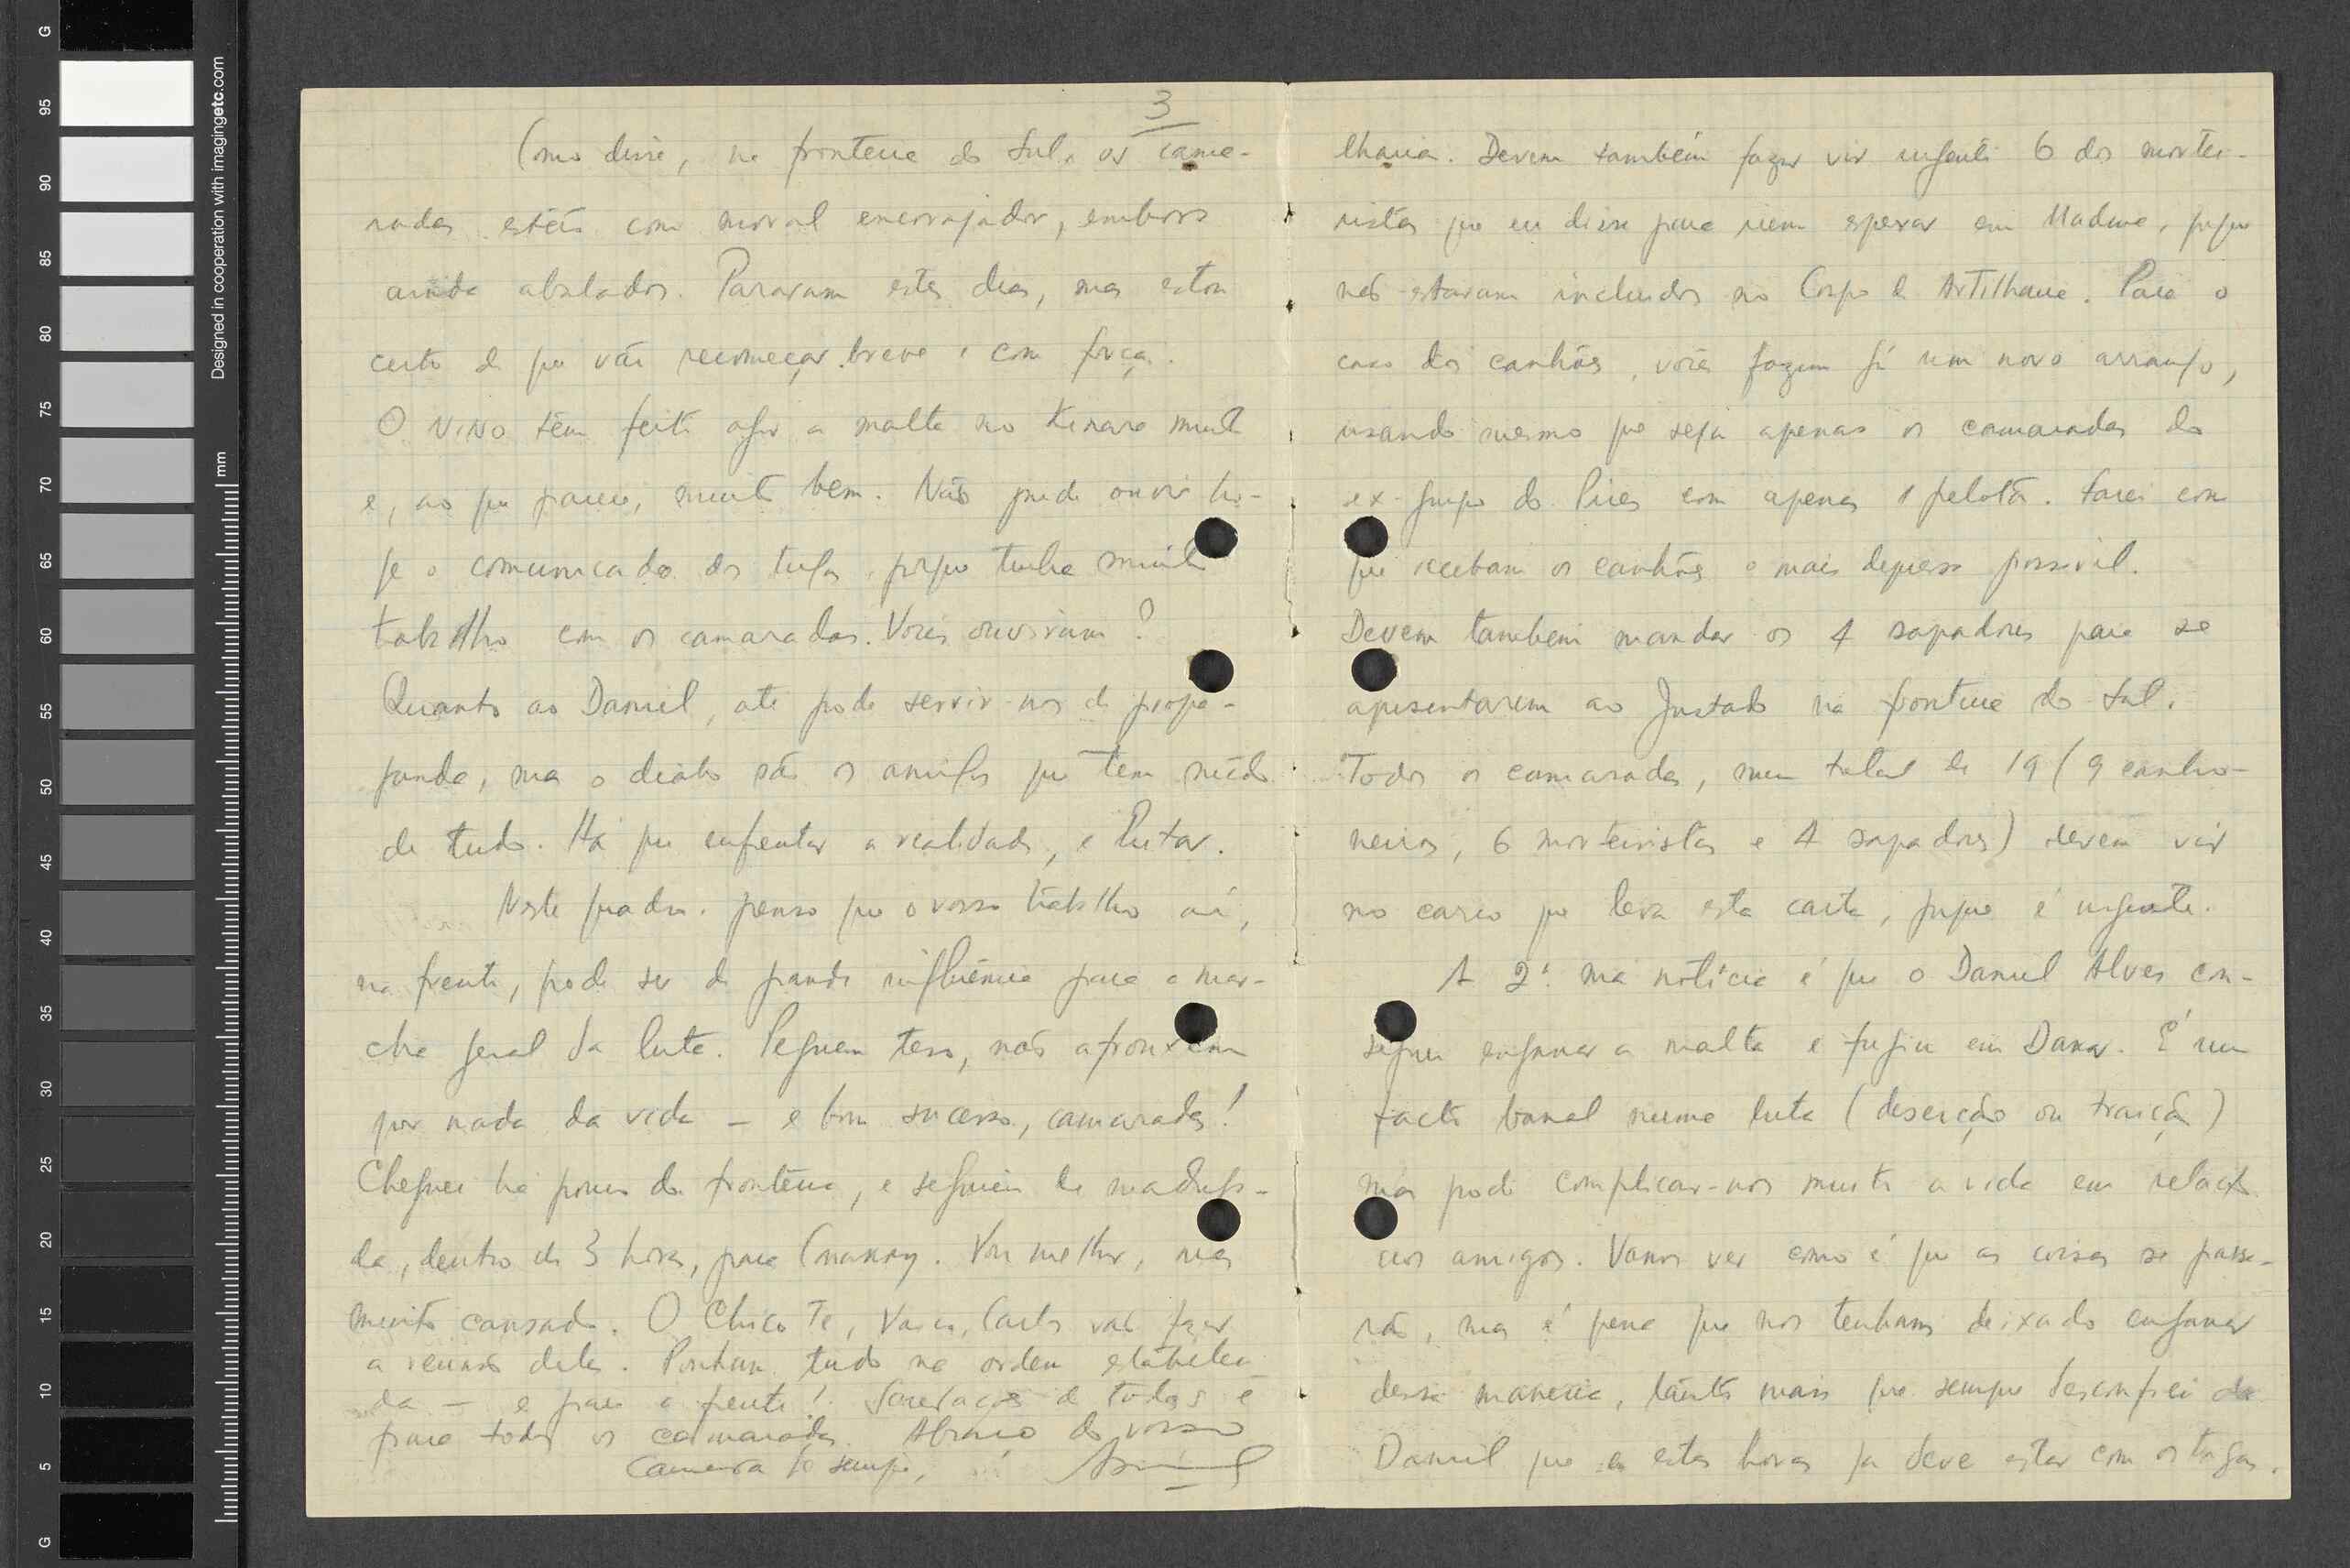 3
Como disse, na fronteira do Sul, os cama-
radas estão com moral encorajador, embora
ainda abalados. Pararam estes dias, mas estou
certo de que vão recomeçar breve e com força.
O NINO têm feito agir a malta no Kinara muito
e, ao que parece, muito bem. Não pude ouvir ho-
je o comunicado dos tugas, porque tinha muito
trabalho com os camaradas. Vocês ouviram?
Quanto ao Daniel, até pode servir-nos de propa-
ganda, mas o diabo são os amigos que tem mêdo
de tudo. Há que enfrentar a realidade, e lutar.
Neste quadro, penso que o vosso trabalho aí,
na frente, pode ser de grande influência para a mar-
cha geral da luta. Peguem teso, não afrouxem
por nada da vida — e bom sucesso, camaradas!
Cheguei há pouco da fronteira, e seguirei de madruga-
da, dentro de 3 horas, para Conakry. Vou melhor, mas
muito cansado. O Chico Te, Vasco, Carlos vão fazer
a reunião deles. Ponham tudo na ordem estabeleci
da — e para a frente! Saudações de todos e
para todos os camaradas. Abraço do vosso
camarada de sempre,
lharia. Devem também fazer vir urgente 6 dos mortei-
ristas que eu disse para irem esperar em Madina, porque
não estavam incluidos no Corpo de Artilharia. Para o
caso dos canhões, vocês fazem já um novo arranjo,
usando mesmo que seja apenas os camaradas do
ex-grupo do Pires com apenas 1 pelotão. Farei com
que recebam os canhões o mais depressa possível.
Devem também mandar os 4 sapadores para se
apresentarem ao Justado na fronteira do Sul.
Todos os camaradas, num total de 19 (9 canho-
neiros, 6 morteiristas e 4 sapadores) devem vir
no carro que leva esta carta, porque é urgente.
A 2ª má notícia é que o Daniel Alves con-
seguiu enganar a malta e fugiu em Dakar. É um
facto banal numa luta (deserção ou traição)
mas pode complicar-nos muito a vida em relação
aos amigos. Vamos ver como é que as coisas se passa-
rão, mas é pena que nos tenham deixado enganar
dessa maneira, tanto mais que sempre desconfiei do
Daniel que a estas horas já deve estar com os tugas.
Designed in cooperation with imagingetc.com
mm
G
95
90
85
80
75
70
65
60
55
50
45
40
35
30
25
20
15
10
5
G